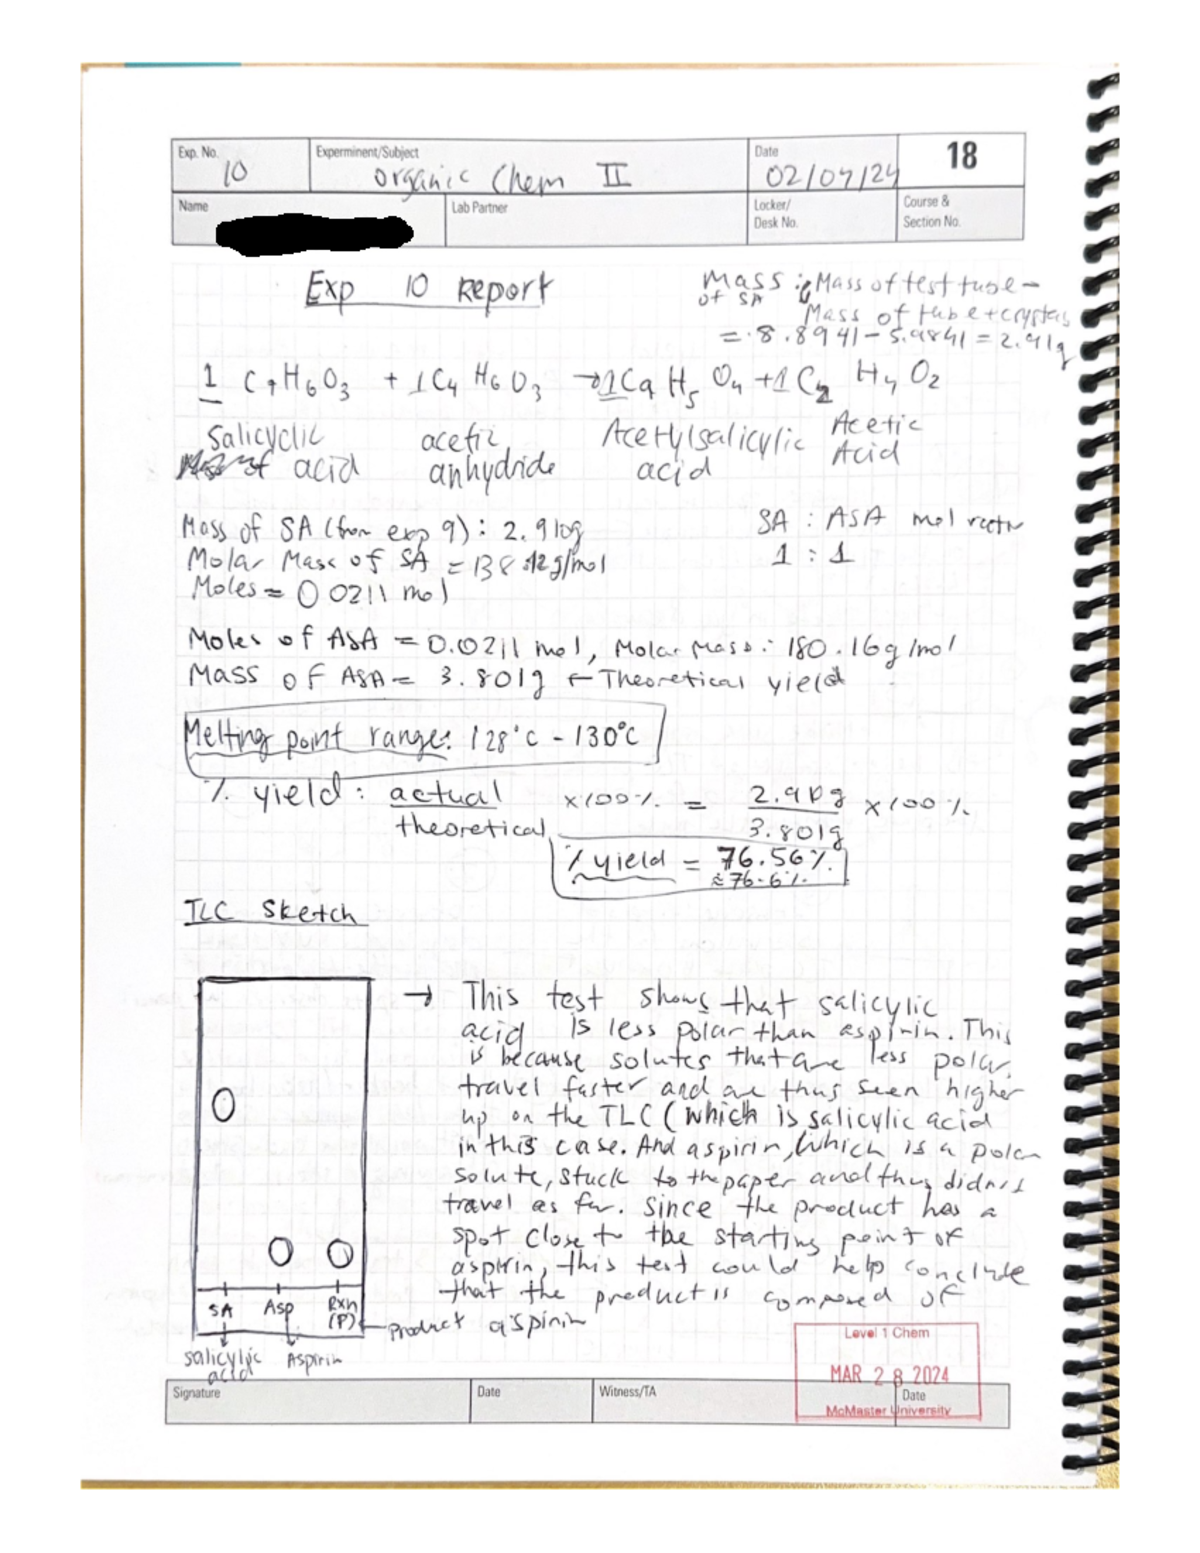 Exp. No. 10
Experminent/Subject Organic Chem II
Date 02/04/24
18
Name
Lab Partner
Locker/ Desk No.
Course & Section No.
Exp 10 Report
Mass of SA : Mass of test tube -
Mass of tube + crystals
= 8.8941 - 5.9841 = 2.91g
1 C7H6O3 + 1C4H6O3 → 1C9H5O4 + 1C2H4O2
Salicyclic acid
acetic anhydride
Acetylsalicylic acid
Acetic Acid
Mass of SA (from exp 9) : 2.910g
SA : ASA mol
Molar Mass of SA = 138.12g/mol
1 : 1
Moles = 0.0211 mol
Moles of ASA = 0.0211 mol, Molar Mass : 180.16g/mol
Mass of ASA = 3.801g ← Theoretical yield
Melting point range: 128°C - 130°C
% yield : actual / theoretical x100% = 2.910g / 3.801g x100%
% yield = 76.56%
≈ 76.6%
TLC Sketch
→ This test shows that salicylic
acid is less polar than aspirin. This
is because solutes that are less polar
travel faster and are thus seen higher
up on the TLC (which is salicylic acid
in this case. And aspirin, which is a polar
solute, stuck to the paper and thus didn't
travel as far. Since the product has a
spot close to the starting point of
aspirin, this test could help conclude
that the product is composed of
aspirin
SA Asp Rxn (P) ← Product
Salicylic acid
Aspirin
Level 1 Chem
MAR 28 2024
McMaster University
Signature
Date
Witness/TA
Date